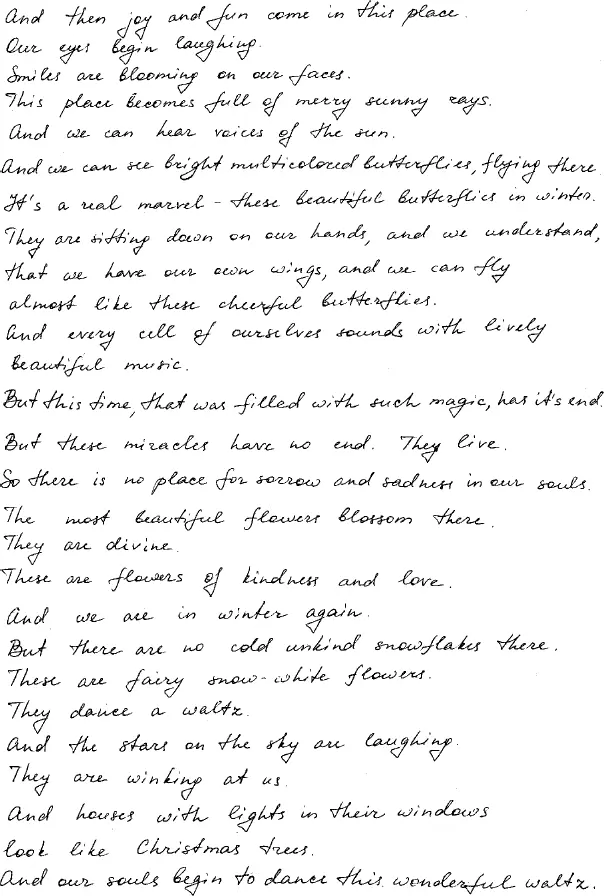 And then joy and fun come in this place.
Our eyes begin laughing.
Smiles are blooming on our faces.
This place becomes full of merry sunny rays.
And we can hear voices of the sun.
And we can see bright multicolored butterflies, flying there.
It's a real marvel - these beautiful butterflies in winter.
They are sitting down on our hands, and we understand,
that we have our own wings, and we can fly
almost like these cheerful butterflies.
And every cell of ourselves sounds with lively
beautiful music.
But this time, that was filled with such magic, has it's end.
But these miracles have no end. They live.
So there is no place for sorrow and sadness in our souls.
The most beautiful flowers blossom there.
They are divine.
These are flowers of kindness and love.
And we are in winter again.
But there are no cold unkind snowflakes there.
These are fairy snow-white flowers.
They dance a waltz.
And the stars on the sky are laughing.
They are winking at us.
And houses with lights in their windows
look like Christmas trees.
And our souls begin to dance this wonderful waltz.